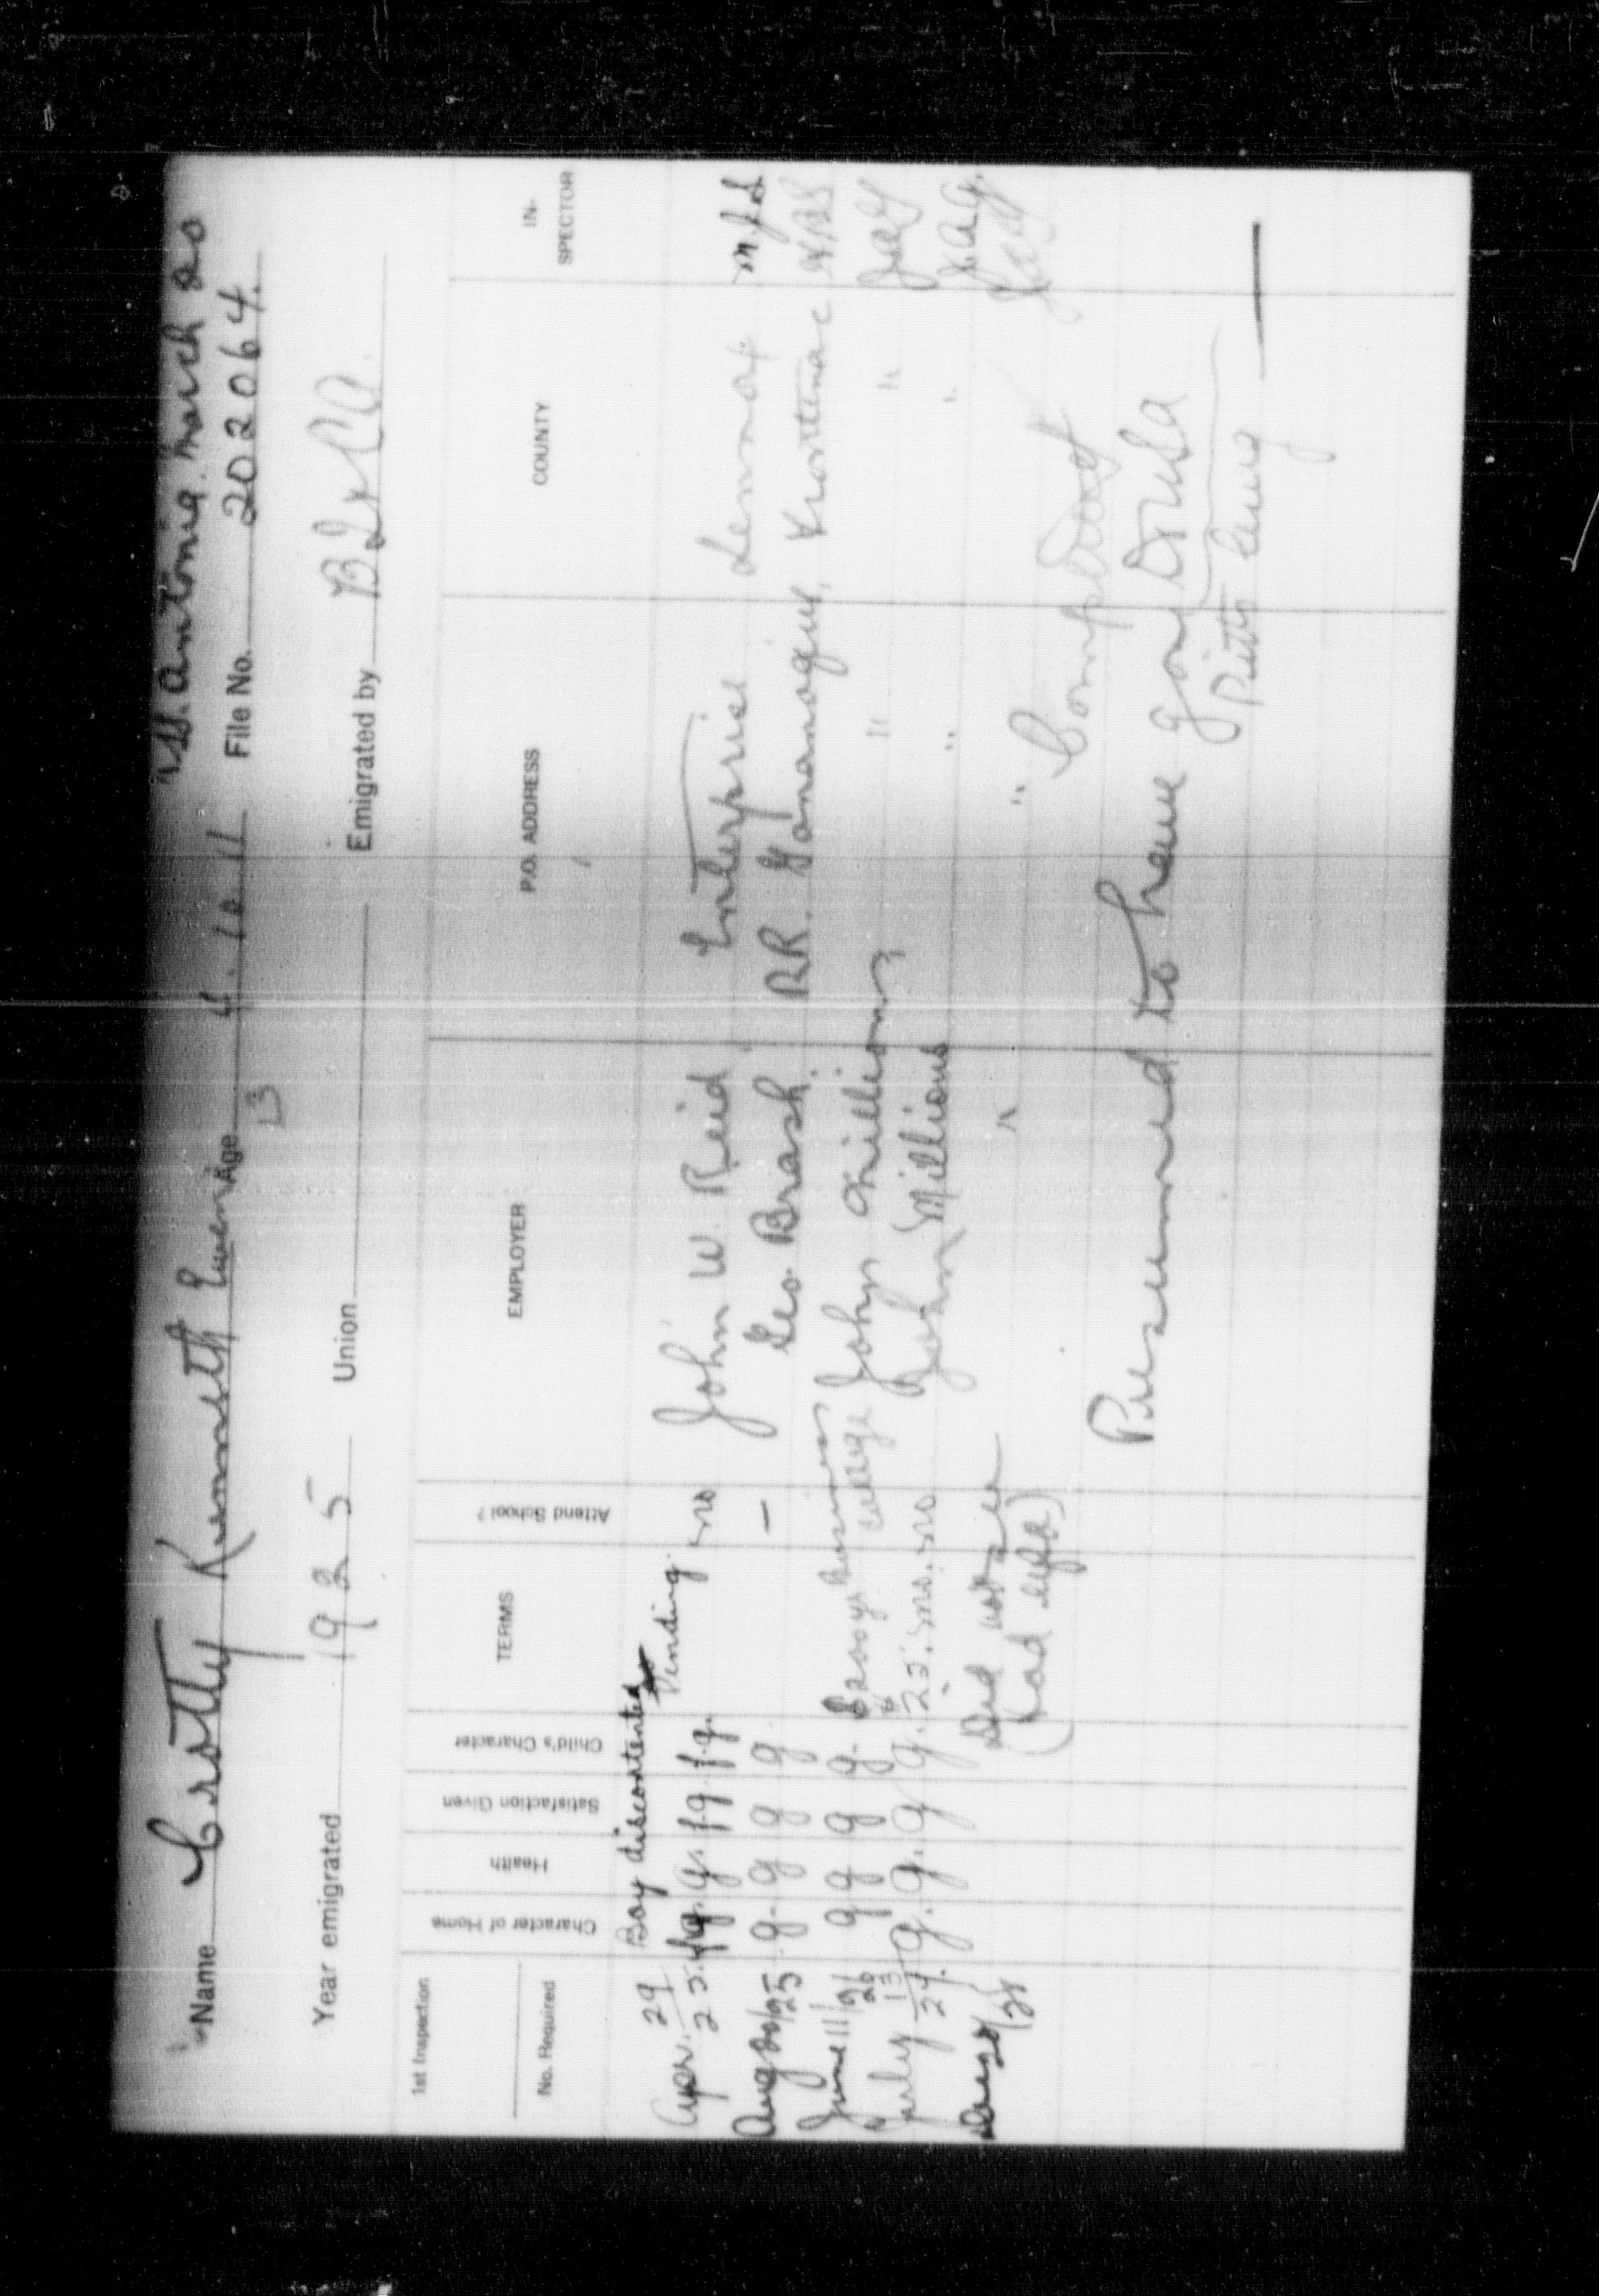 "SS. Antonia. March 20
Name Crotty Kenneth Ewen Age 4.10.11 File No. 202064.
13
Year emigrated 1925 Union Emigrated by
1st Inspection
No. Required
Character of Home
Health
Satisfaction Given
Child's Character
TERMS
Attend School?
EMPLOYER
P.O. ADDRESS
COUNTY
IN-
SPECTOR
Boy discontented
Apr. 29/25. fg. g. fg. f.g. Pending no John W. Reid Enterprise Lennox
Aug 20/25 g. g g g. — Geo. Brash. RR. Gananoque, Frontenac
June 11/26 g g g g. Business College John Millions " "
July 13/27. g. g. g g. 25. mo. no John Millions " "
/28 Did not see "
(had left) Completed
Presumed to have gone to USA